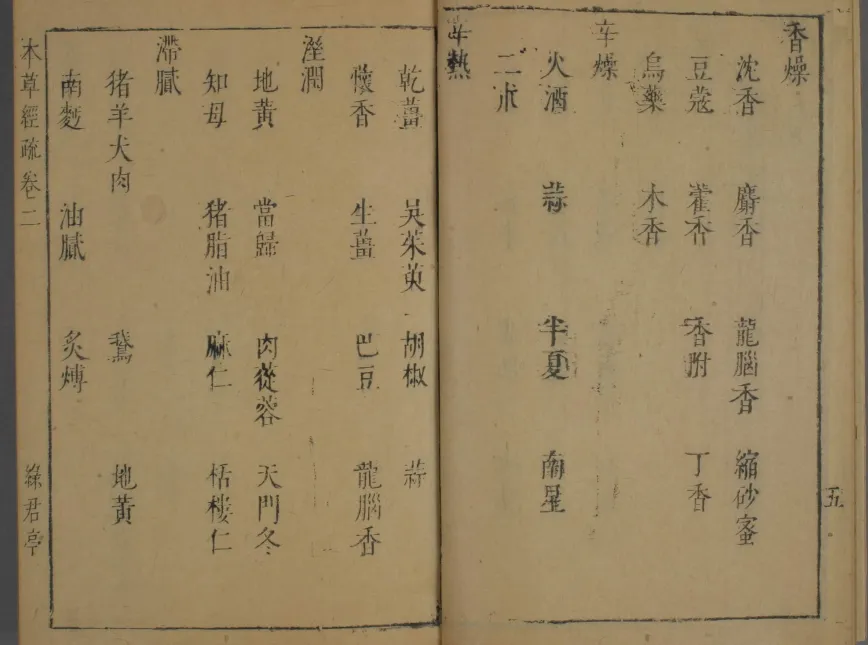 香燥
沈香　麝香　龍腦香　縮砂蜜
豆蔻　藿香　香附　丁香
烏藥　木香
辛燥
火酒　蒜　半夏　南星
二朮
辛熱
五
乾薑　吳茱萸　胡椒　蒜
懷香　生薑　巴豆　龍腦香
溼潤
地黃　當歸　肉蓯蓉　天門冬
知母　猪脂油　麻仁　栝樓仁
滯膩
猪羊犬肉　鵞　地黃
南麪　油膩　炙煿
本草經疏卷二　綠君亭